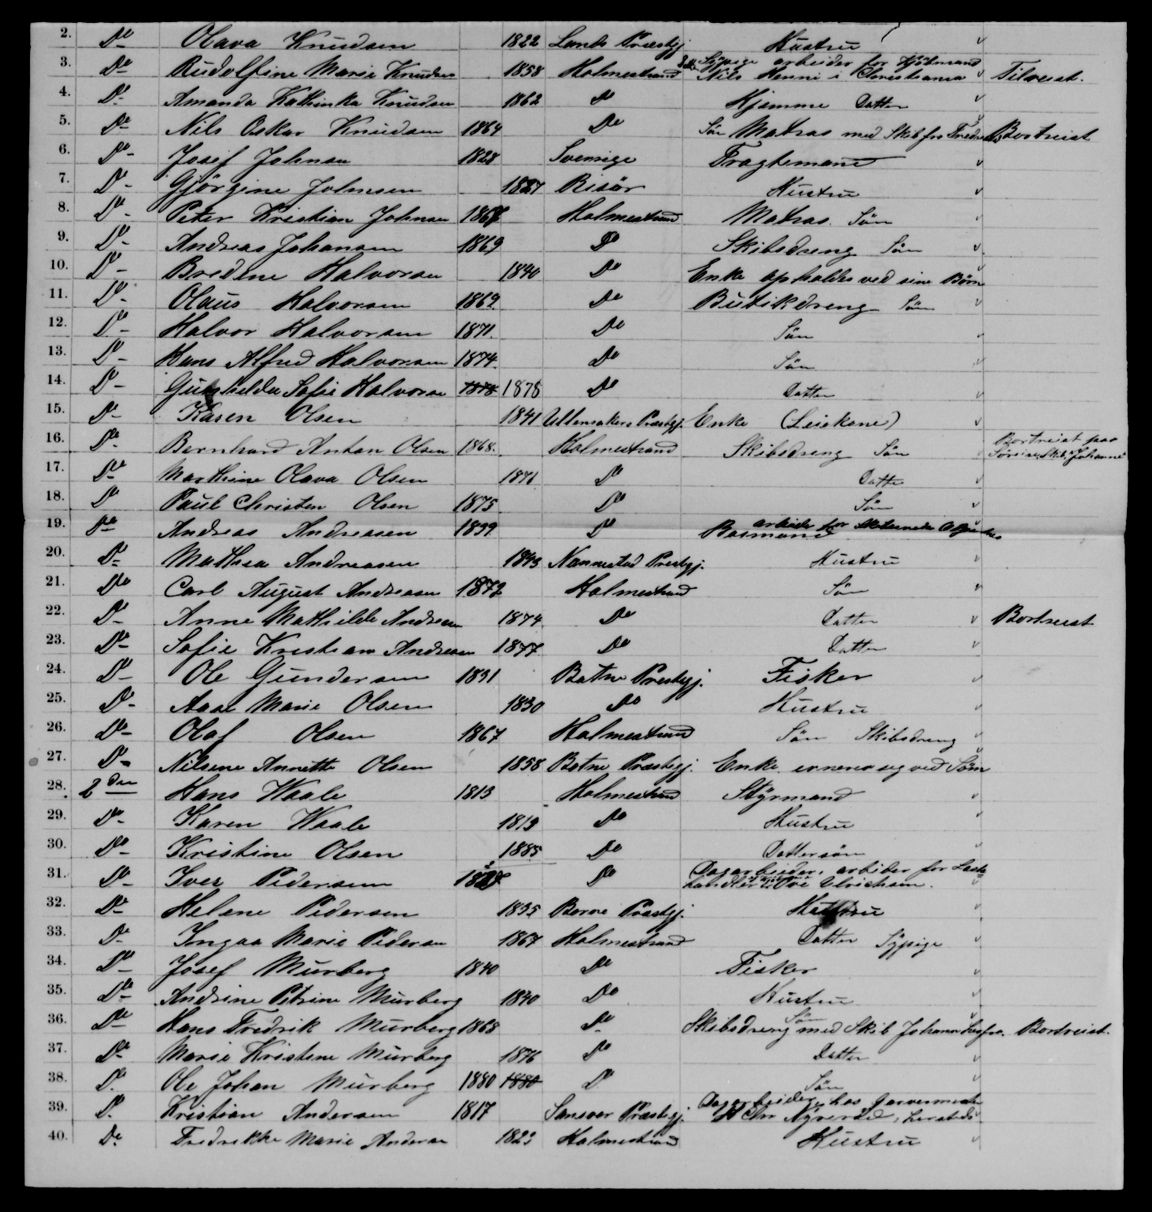 2. Do Olava Knudsen 1822 Præstgj. Hustru
3. Do Rudolfine Marie Knudsen 1858 Holmestrand Sypige arbeider for Kjøbmand Nils Henni i Christiania Tilreist.
4. Do Amanda Kathinka Knudsen 1862 Do Hjemme Datter
5. Do Nils Oskar Knudsen 1864 Do Søn Matros med Skib fra Bortreist
6. Do Josef Johnsen 1828 Sverrige Fragtemand
7. Do Gjørgine Johnsen 1827 Risør Hustru
8. Do Peter Kristian Johnsen Holmestrand Matros. Søn
9. Do Andreas Johansen 1869 Do Skibsdreng Søn
10. Do Bredine Halvorsen 1840 Do Enke opholdes ved sine Børn
11. Do Olaus Halvorsen 1869. Do Butikdreng Søn
12. Do Halvor Halvorsen 1871. Do Søn
13. Do Hans Alfred Halvorsen 1874. Do Søn
14. Do Gunhilda Sofie Halvorsen 1878 1878 Do Datter
15. Do Karen Olsen 1841 Ullensakers Præstgj. Enke
16. Do Bernhard Anton Olsen 1868. Holmestrand Skibsdreng Søn Bortreist paa
17. Do Marthine Olava Olsen 1871 Do Datter
18. Do Paul Christen Olsen 1875 Do Søn
19. Do Andreas Andreasen 1839 Do arbeider for
20. Do Mathea Andreasen 1843 Nannestad Præstgj. Hustru
21. Do Carl August Andreasen 1872 Holmestrand Søn
22. Do Anne Mathilde Andreasen 1874 Do Datter Bortreist
23. Do Sofie Kristiane Andreasen 1877 Do Datter
24. Do Ole Gundersen 1831 Botne Præstgj. Fisker
25. Do Aase Marie Olsen 1830 Do Hustru
26. Do Olaf Olsen 1867 Holmestrand Søn Skibsdreng
27. Do Nilsine Annette Olsen 1858 Botne Præstgj. Enke ernærer sig ved Søm
28. 2 den Hans Waale 1813 Holmestrand Styrmand
29. Do Karen Waale 1819 Do Hustru
30. Do Kristine Olsen 1885 Do Dattersøn
31. Do Iver Pedersen Do Dagarbeider, arbeider for
32. Do Helene Pedersen 1835 Borre Præstgj. Hustru
33. Do Ingaa Marie Pedersen 1867 Holmestrand Datter Sypige
34. Do Josef Murberg 1840 Do Fisker
35. Do Andrine Petrine Murberg 1840 Do Hustru
36. Do Hans Fredrik Murberg 1868 Do Søn Skibsdreng med Skib Bortreist.
37. Do Marie Kristine Murberg 1876 Do Datter
38. Do Ole Johan Murberg 1880 1880 Do Søn
39. Do Kristian Andersen 1817 Præstgj. Dagarbeider hos
40. Do Fredrikke Marie Andersen 1823 Holmestrand Hustru